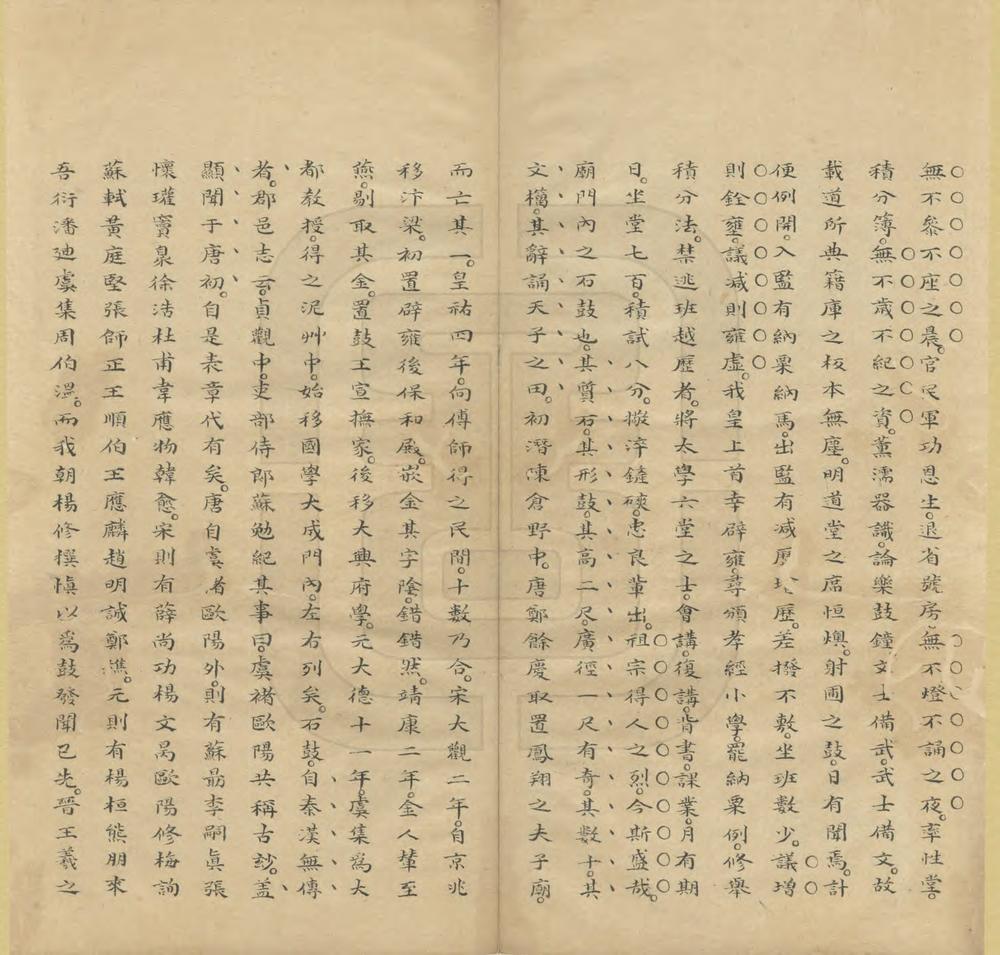 無不參不座之晨。官民軍功恩生。退省號房。無不燈不誦之夜。率性堂。
積分簿。無不歲不紀之資。薰濡器識。論樂鼓鐘。文士備武。武士備文。故
載道所典籍庫之板本無塵。明道堂之席恒燠。射圃之鼓。日有聞焉。計
便例開。入監有納粟納馬。出監有減歷。差撥不敷。坐班數少。議增
則銓壅。議減則雍虛。我皇上首幸辟雍。尋頒孝經小學。罷納粟例。修舉
積分法。禁逃班越歷者。將太學六堂之士。會講。復講。背書。課業。月有期
日。坐堂七百。積試八分。擬淬鏟磢。忠良輩出。祖宗得人之烈。今斯盛哉。
廟門內之石鼓也。其質石。其形鼓。其高二尺。廣徑一尺有奇。其數十。其
文籀。其辭誦天子之田。初潛陳倉野中。唐鄭餘慶取置鳳翔之夫子廟。
而亡其一。皇祐四年。向傅師得之民間。十數乃合。宋大觀二年。自京兆
移汴梁。初置辟雍。後保和殿。嵌金其字陰。錯錯然。靖康二年。金人輦至
燕。剔取其金。置鼓王宣撫家。後移大興府學。元大德十一年。虞集為大
都教授。得之泥艸中。始移國學大成門內。左右列矣。石鼓自秦漢無傳
者。郡邑志云。貞觀中。吏部侍郎蘇勉紀其事曰。虞褚歐陽共稱古玅。蓋
顯聞于唐初。自是表章代有矣。唐自虞褚歐陽外。則有蘇勗李嗣真張
懷瓘竇臮徐浩杜甫韋應物韓愈。宋則有薛尚功楊文昺歐陽修梅詢
蘇軾黃庭堅張師正王順伯王應麟趙明誠鄭漁。元則有楊桓熊朋來
吾衍潘廸虞集周伯溫。而我朝楊修撰慎以為鼓發聞已先。晉王羲之